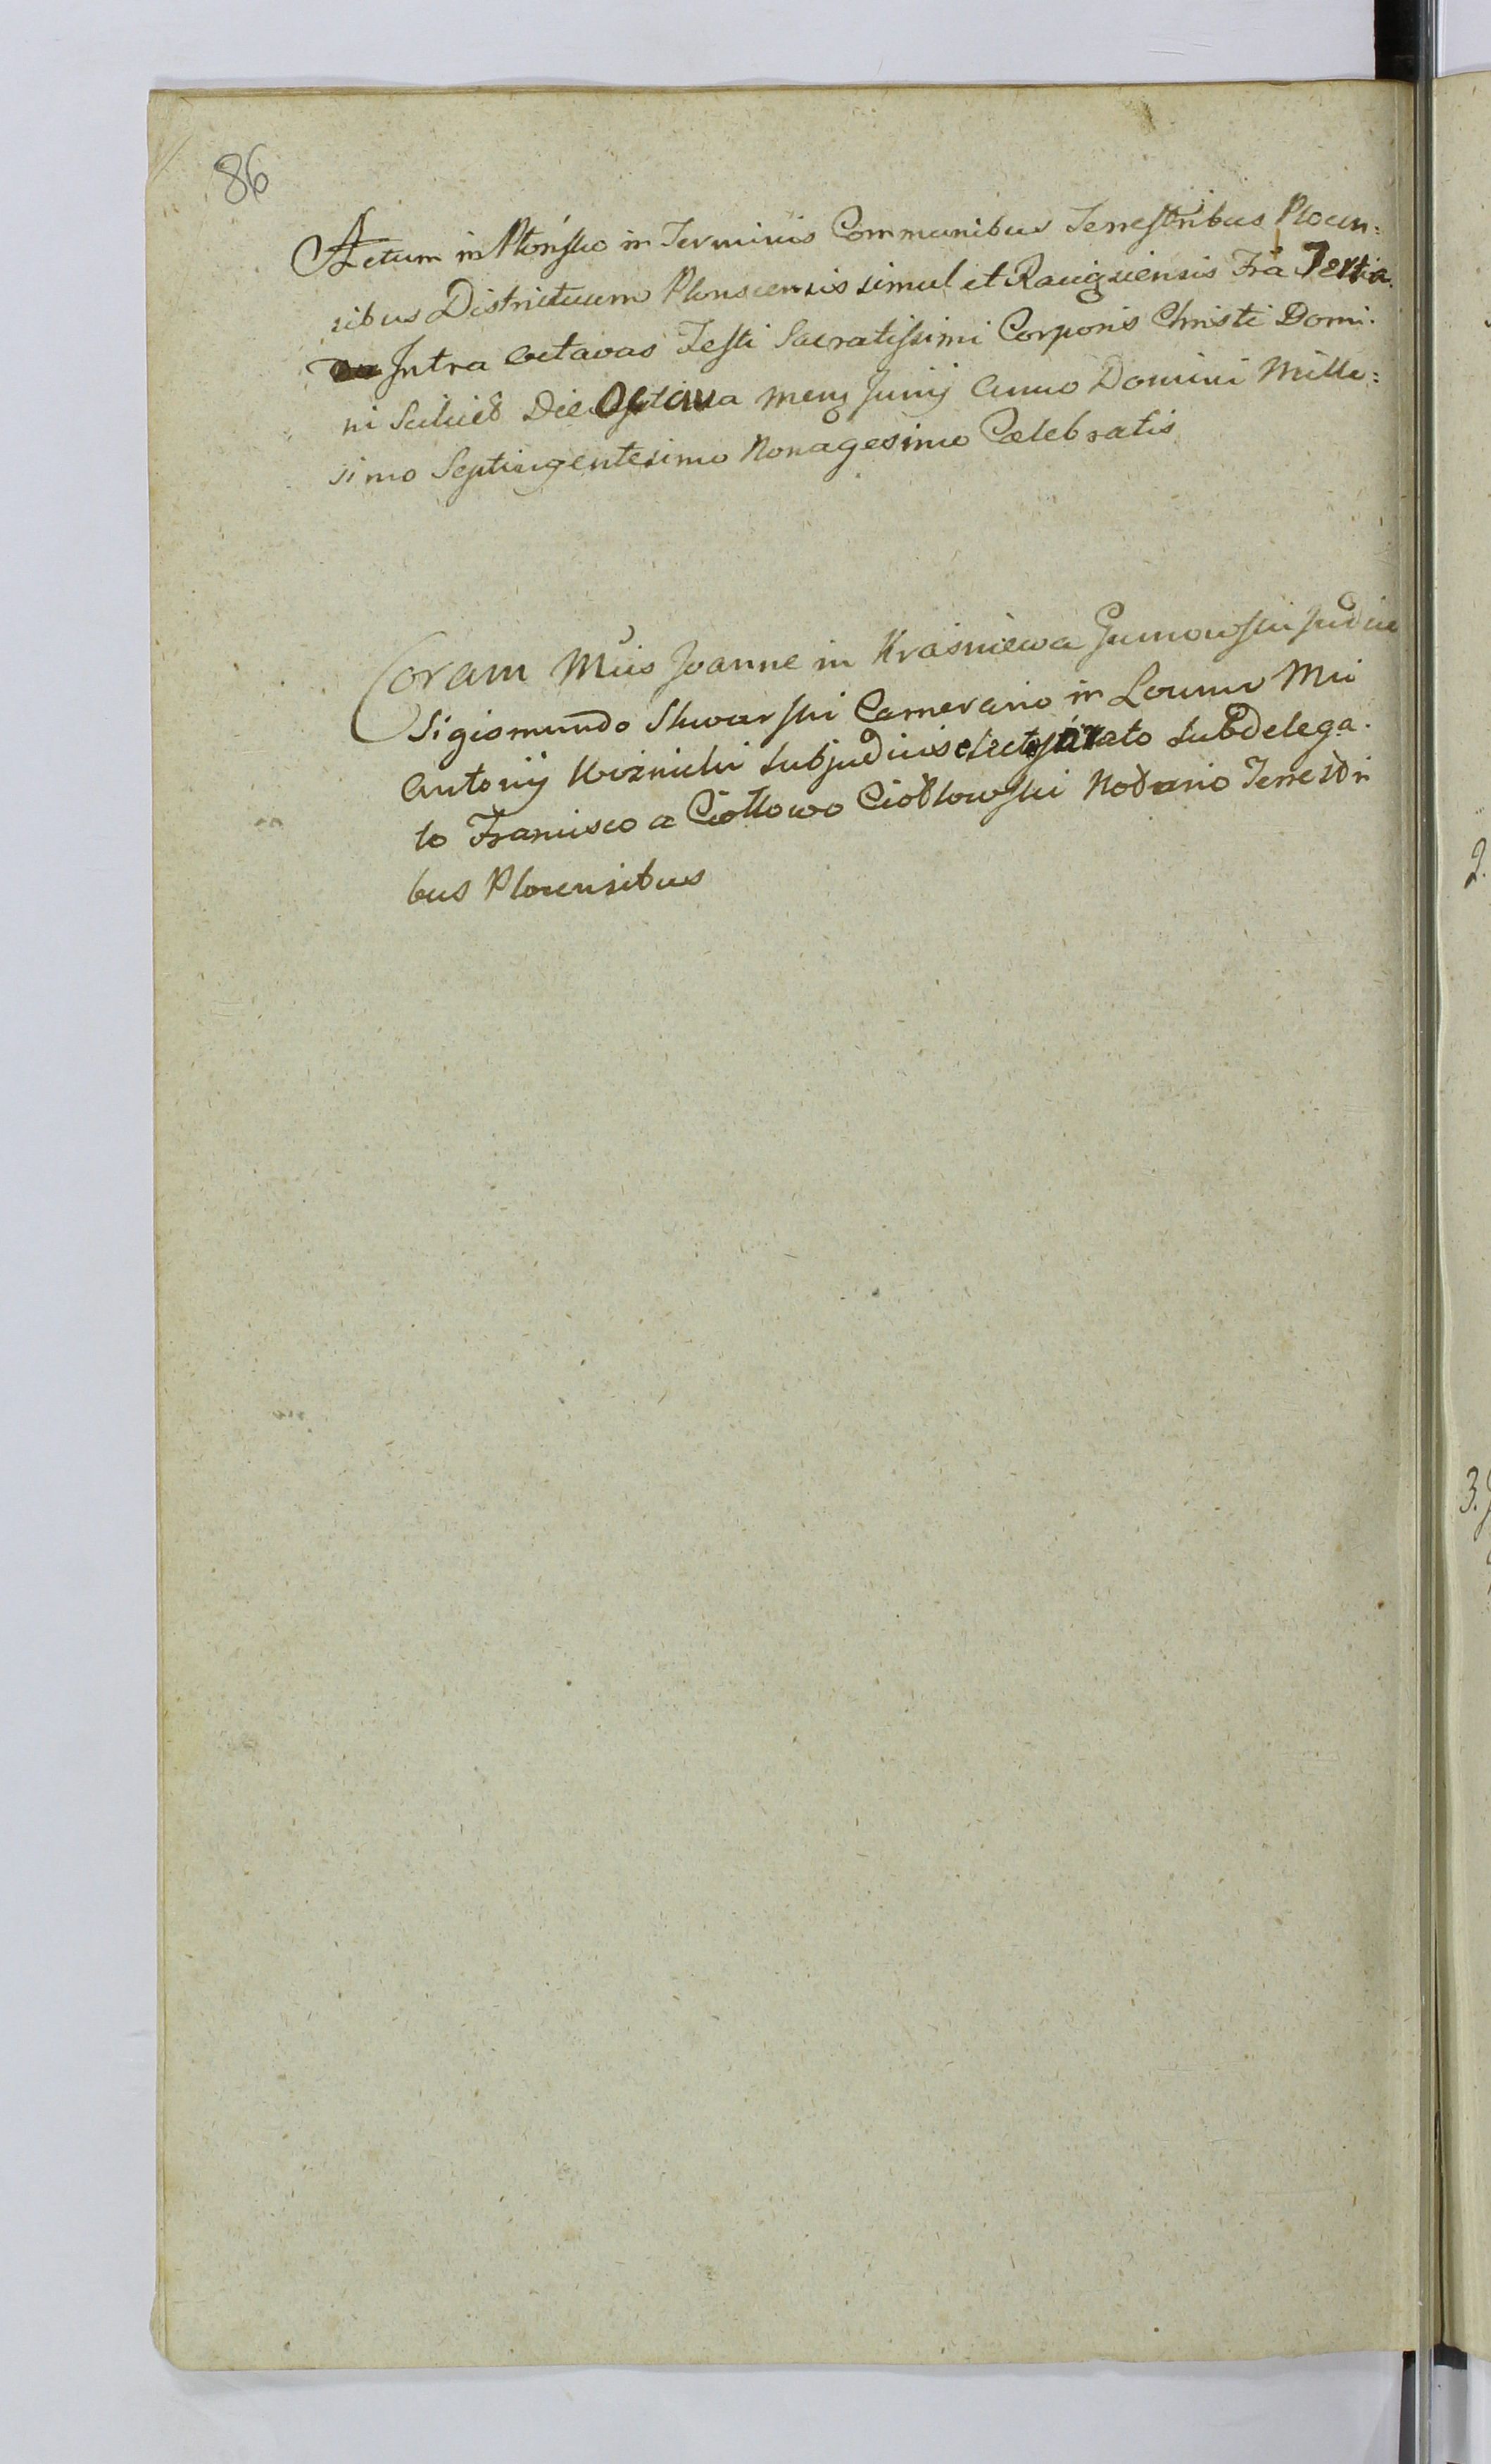 86
Actum in Płońsko in Terminis Communibus Terrestribus Plocen:
sibus Districtuum Plonscensis simul et Raciąziensis Fra Tertia
Intra Octavas Festi Sacratissimi Corporis Christi Domi:
ni Scilicet Die Octava Mens Junij Anno Domini Mille:
simo Septingentesimo Nonagesimo Celebratis
Coram Mcis Joanne in Kraśniewa Gumowski Judice
Sigismundo Skwarski Camerario in Locum Mci
Antonij subjudicis electo jurato subdelega:
to Francisco a Ciołkowo Ciołkowski Notario Terrestri
bus Plocensibus
2.
3.